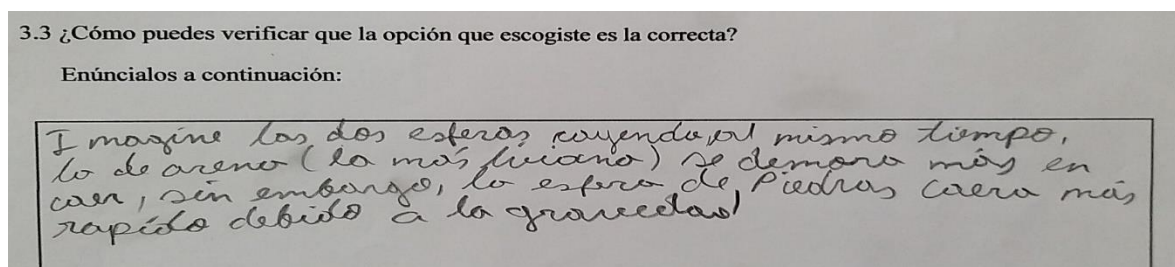 3.3 ¿Cómo puedes verificar que la opción que escogiste es la correcta?
Enúncialos a continuación:
Imagine las dos esferas cayendo al mismo tiempo,
la de arena (la más) se demora más en
caer, sin embargo, la esfera de piedras caera más
rapído debido a la gravedad